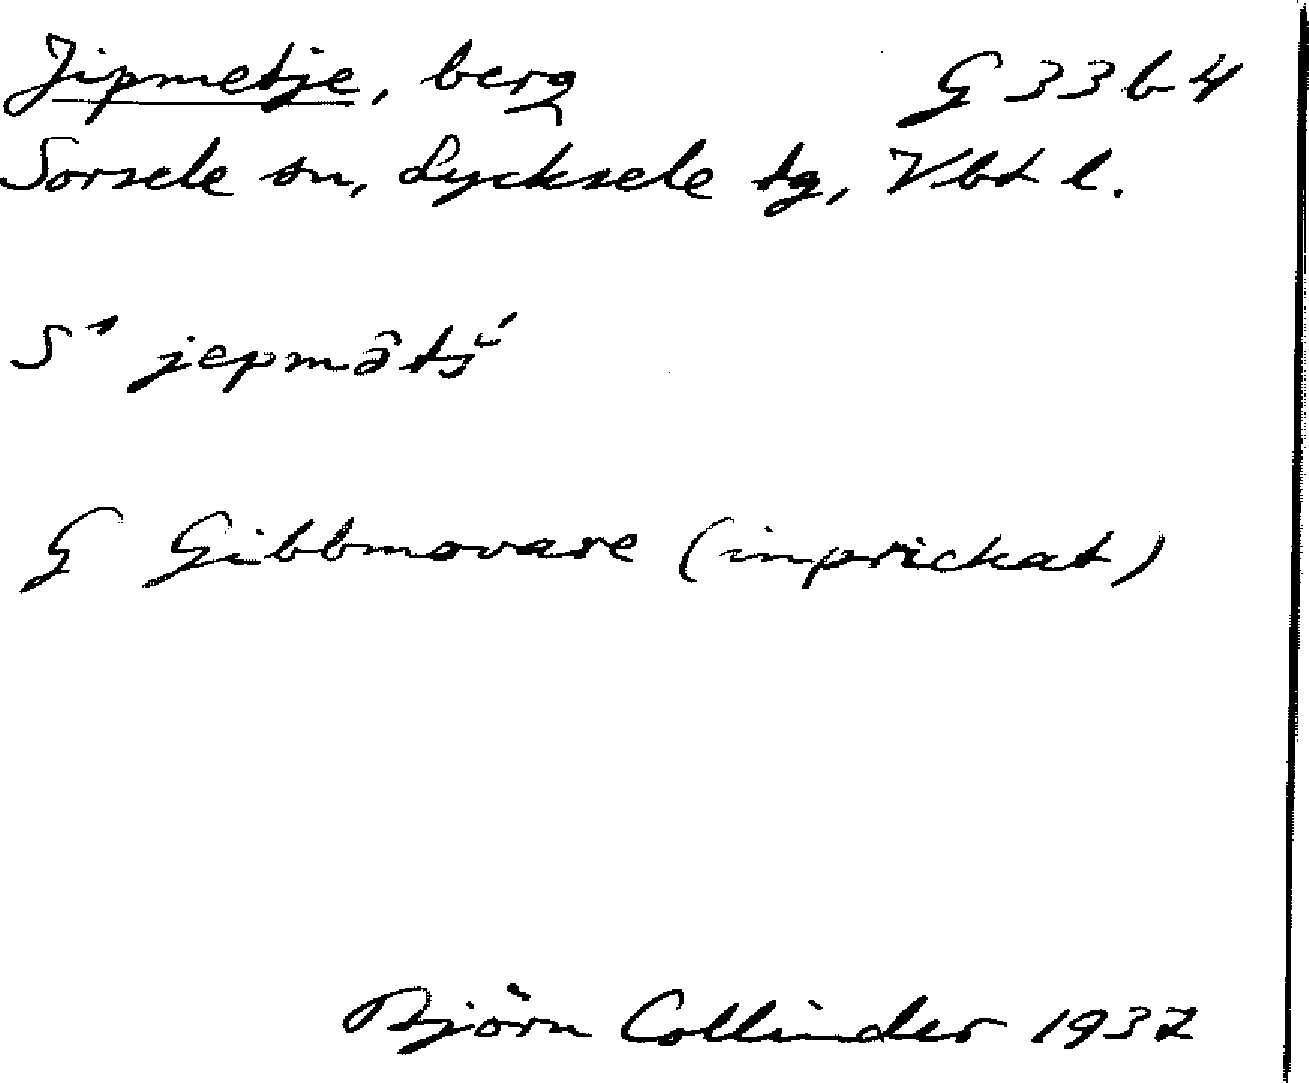 Jipmetje, berg G 33 b 4
Sorsele sn, Lycksele tg, Vbt l.
S¹ jepmātš́
G Gibbmovare (inprickat)
Björn Collinder 1937